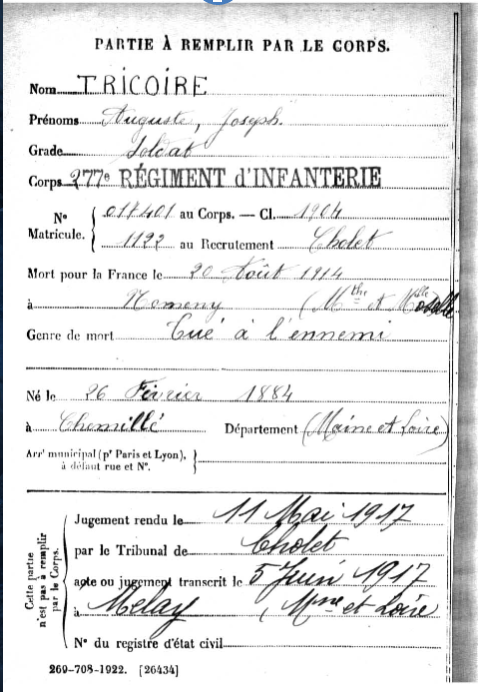 PARTIE À REMPLIR PAR LE CORPS.
Nom TRICOIRE
Prénoms Auguste, Joseph.
Grade Soldat
Corps 277e RÉGIMENT d'INFANTERIE
No Matricule. { 017401 au Corps. — Cl. 1904
1122 au Recrutement Cholet
Mort pour la France le 20 Août 1914
à Nomeny (Mthe et Moselle
Genre de mort Tué à l'ennemi
Né le 26 Février 1884
à Chemillé Département (Maine et Loire)
Arrt municipal (pr Paris et Lyon), à défaut rue et No.
Cette partie n'est pas à remplir par le Corps.
Jugement rendu le 11 Mai 1917
par le Tribunal de Cholet
acte ou jugement transcrit le 5 Juin 1917
à Melay (Mne et Loire
No du registre d'état civil
269-708-1922. [26434]